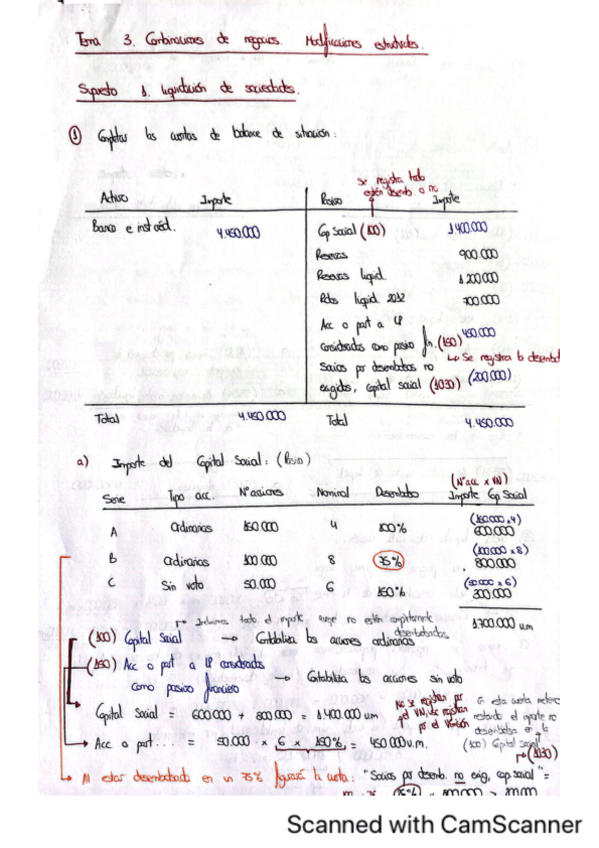 Tema 3. Combinaciones de negocios. Modificaciones estructurales.
Supuesto 1. liquidación de sociedades.
① Completar las cuentas de balance de situación:
Se registra todo
estén desemb o no
Activo Importe Pasivo Importe
Banco e inst créd. 4.450.000 Cap Social (100) 1.400.000
Reservas 900.000
Reservas liquid. 1.200.000
Rdos liquid 2012 700.000
Acc o part a LP
consideradas como pasivo fin. (150) 450.000
↳ Se registra lo desemb
Socios por desembolsos no
exigidos, capital social (1030) (200.000)
Total 4.450.000 Total 4.450.000
a) Importe del Capital Social: (Pasivo)
(Nº acc x VN)
Serie Tipo acc. Nº acciones Nominal Desembolso Importe Cap Social
A Ordinarias 150.000 4 100% (150.000 x 4) 600.000
B Ordinarias 100.000 8 75% (100.000 x 8) 800.000
C Sin voto 50.000 6 150% (50.000 x 6) 300.000
1.700.000 u.m
Incluimos todo el importe, aunque no estén completamente desembolsados
(100) Capital Social → Contabiliza las acciones ordinarias
(150) Acc o part a LP consideradas
como pasivo financiero → Contabiliza las acciones sin voto
Capital Social = 600.000 + 800.000 = 1.400.000 u.m
No se registran por
el VN, se registran
por el
En esta cuenta
restando el importe no
desembolsa en la
(100) Capital Social
(1030)
Acc o part... = 50.000 x 6 x 150% = 450.000 u.m.
Al estar desembolsado en un 75% figurará la cuenta: "Socios por desemb. no exig, cap. social" =